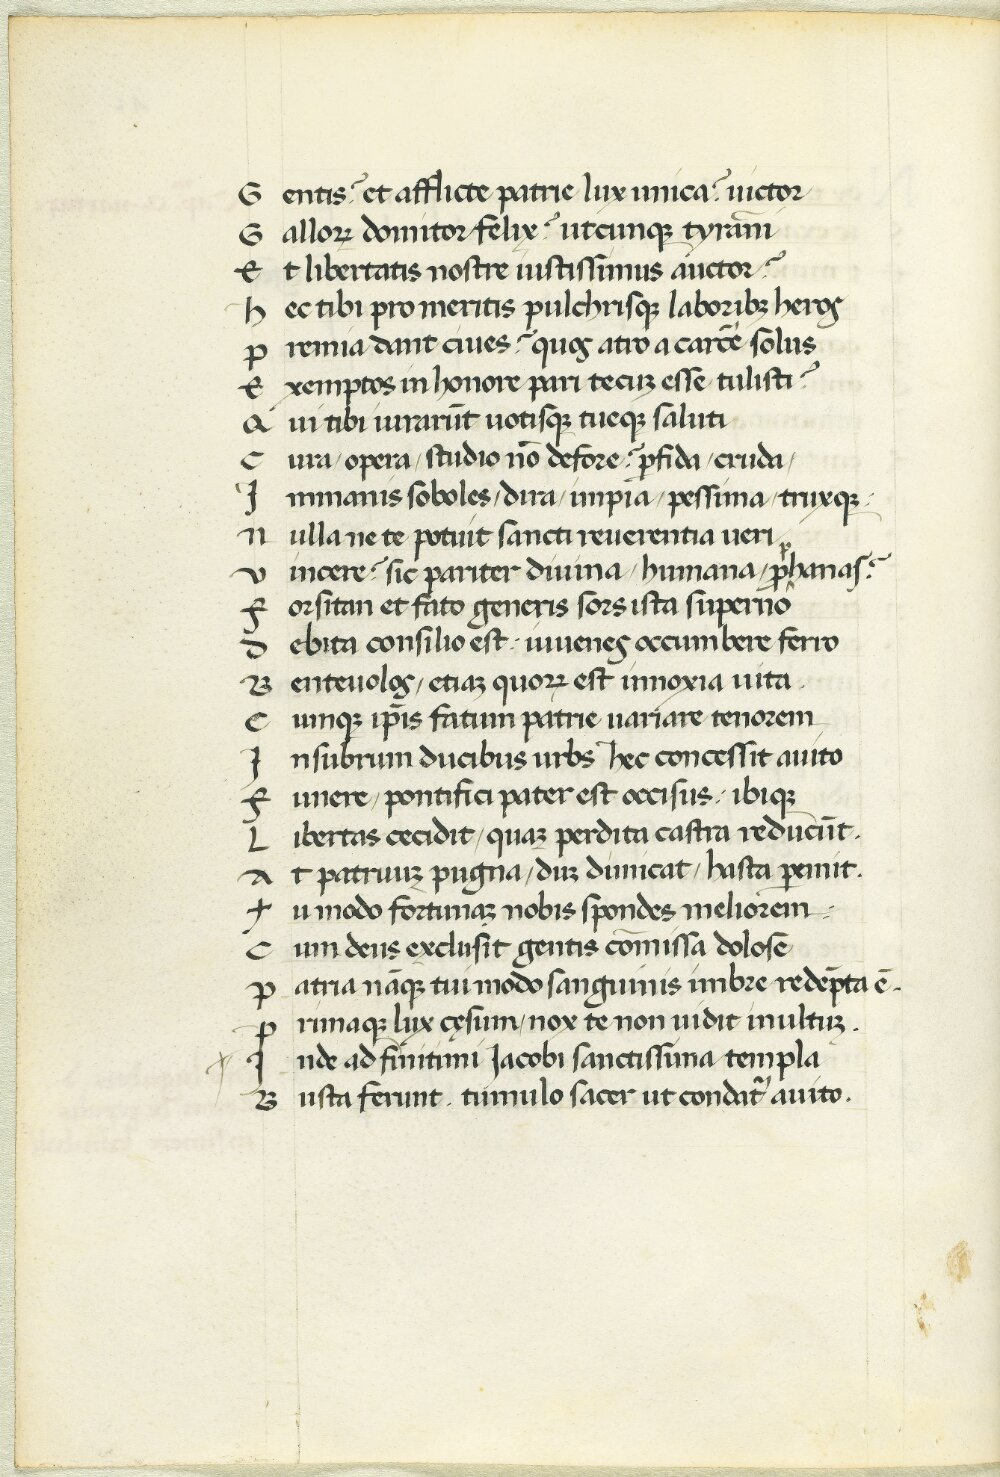 G entis? et afflicte patrie lux unica? uictor
G alloꝝ domitor felix? utcunqꝫ tyrāni
E t libertatis nostre iustissimus auctor?
h ec tibi pro meritis pulchrisqꝫ laboribꝫ heros
p remia dant ciues? quos atro a carcē solus
E xemptos in honore pari tecuꝫ esse tulisti?
Q ui tibi iurarūt uotisqꝫ tueqꝫ saluti
C ura / opera / studio nō defore? ꝑfida / cruda /
I nmanis soboles / dira / impia / pessima / truxqꝫ :
n ulla ne te potuit sancti reuerentia ueri
v incere? sic pariter diuina / humana / ꝓhanas?
F orsitan et fato generis sors ista superno
D ebita consilio est : iuuenes occumbere ferro
B enteuolos / etiaꝫ quoꝝ est innoxia uita .
C umqꝫ ip̄is fatum patrie uariare tenorem
I nsubrum ducibus urbs hec concessit auito
F unere / pontifici pater est occisus : ibiqꝫ
L ibertas cecidit / quaꝫ perdita castra reducūt .
A t patruuꝫ pugna / duꝫ dimicat / hasta ꝑemit .
T u modo fortunaꝫ nobis spondes meliorem :
C um deus exclusit gentis cōmissa dolose
p atria nāqꝫ tui modo sanguinis imbre redēpta ē .
p rimaqꝫ lux cęsum / nox te non uidit inultuꝫ .
I nde ad finitimi Jacobi sanctissima templa
B usta ferunt . tumulo sacer ut condat᷑ auito .